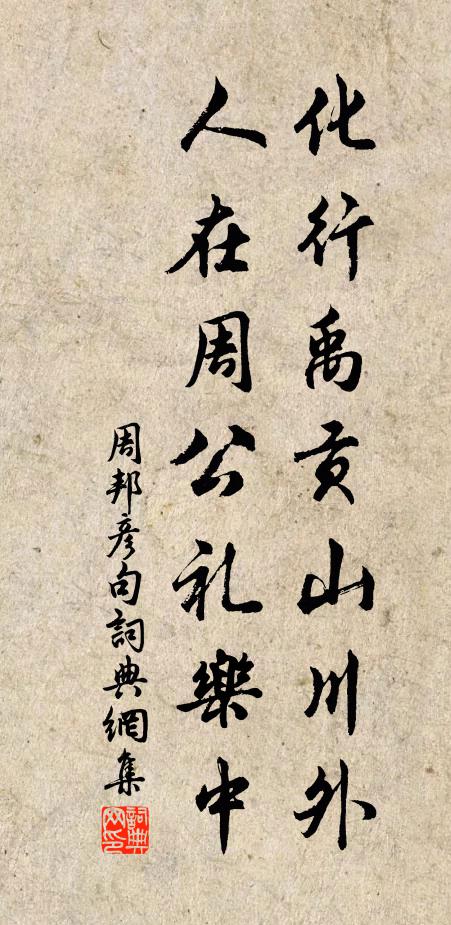 化行禹贡山川外
人在周公礼樂中
周邦彦句詞典網集
詞典网印